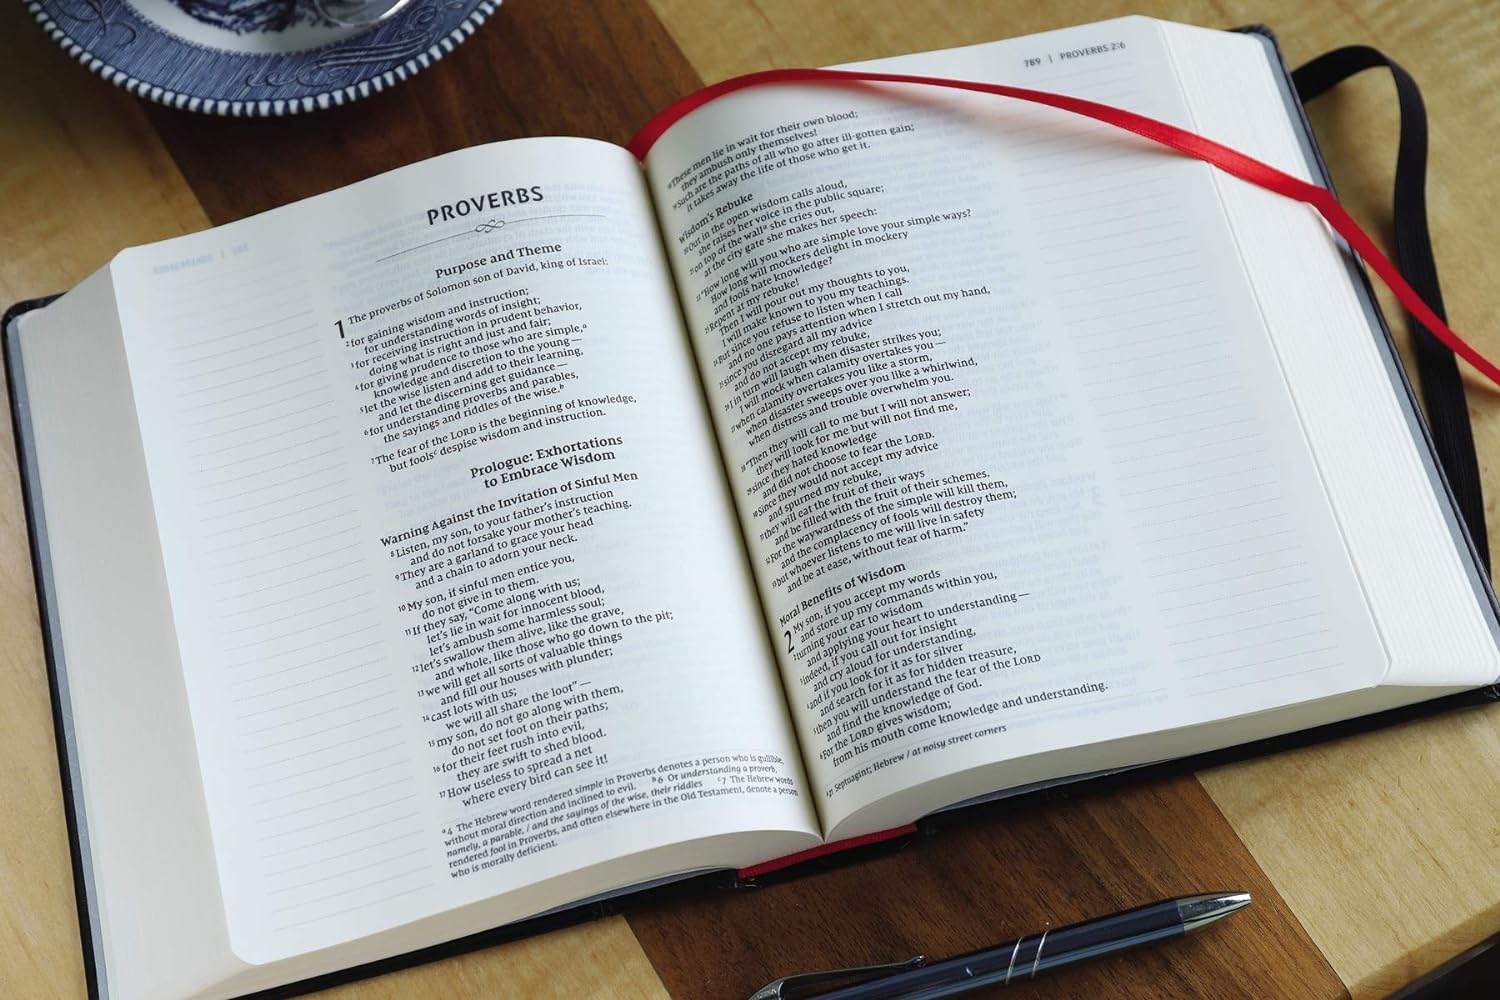 PROVERBS
Purpose and Theme
1 The proverbs of Solomon son of David, king of Israel:
2 for gaining wisdom and instruction;
for understanding words of insight;
3 for receiving instruction in prudent behavior,
doing what is right and just and fair;
4 for giving prudence to those who are simple,a
knowledge and discretion to the young—
5 let the wise listen and add to their learning,
and let the discerning get guidance—
6 for understanding proverbs and parables,
the sayings and riddles of the wise.b
7 The fear of the LORD is the beginning of knowledge,
but foolsc despise wisdom and instruction.
Prologue: Exhortations
to Embrace Wisdom
Warning Against the Invitation of Sinful Men
8 Listen, my son, to your father's instruction
and do not forsake your mother's teaching.
9 They are a garland to grace your head
and a chain to adorn your neck.
10 My son, if sinful men entice you,
do not give in to them.
11 If they say, “Come along with us;
let's lie in wait for innocent blood,
let's ambush some harmless soul;
12 let's swallow them alive, like the grave,
and whole, like those who go down to the pit;
13 we will get all sorts of valuable things
and fill our houses with plunder;
14 cast lots with us;
we will all share the loot”—
15 my son, do not go along with them,
do not set foot on their paths;
16 for their feet rush into evil,
they are swift to shed blood.
17 How useless to spread a net
where every bird can see it!
a 4 The Hebrew word rendered simple in Proverbs denotes a person who is gullible,
without moral direction and inclined to evil. b 6 Or understanding a proverb,
namely, a parable, / and the sayings of the wise, their riddles c 7 The Hebrew words
rendered fool in Proverbs, and often elsewhere in the Old Testament, denote a person
who is morally deficient.
789 | PROVERBS 2:6
18 These men lie in wait for their own blood;
they ambush only themselves!
19 Such are the paths of all who go after ill-gotten gain;
it takes away the life of those who get it.
Wisdom's Rebuke
20 Out in the open wisdom calls aloud,
she raises her voice in the public square;
21 on top of the walla she cries out,
at the city gate she makes her speech:
22 “How long will you who are simple love your simple ways?
How long will mockers delight in mockery
and fools hate knowledge?
23 Repent at my rebuke!
Then I will pour out my thoughts to you,
I will make known to you my teachings.
24 But since you refuse to listen when I call
and no one pays attention when I stretch out my hand,
25 since you disregard all my advice
and do not accept my rebuke,
26 I in turn will laugh when disaster strikes you;
I will mock when calamity overtakes you—
27 when calamity overtakes you like a storm,
when disaster sweeps over you like a whirlwind,
when distress and trouble overwhelm you.
28 “Then they will call to me but I will not answer;
they will look for me but will not find me,
29 since they hated knowledge
and did not choose to fear the LORD.
30 Since they would not accept my advice
and spurned my rebuke,
31 they will eat the fruit of their ways
and be filled with the fruit of their schemes.
32 For the waywardness of the simple will kill them,
and the complacency of fools will destroy them;
33 but whoever listens to me will live in safety
and be at ease, without fear of harm.”
Moral Benefits of Wisdom
2 My son, if you accept my words
and store up my commands within you,
2 turning your ear to wisdom
and applying your heart to understanding—
3 indeed, if you call out for insight
and cry aloud for understanding,
4 and if you look for it as for silver
and search for it as for hidden treasure,
5 then you will understand the fear of the LORD
and find the knowledge of God.
6 For the LORD gives wisdom;
from his mouth come knowledge and understanding.
a 21 Septuagint; Hebrew / at noisy street corners